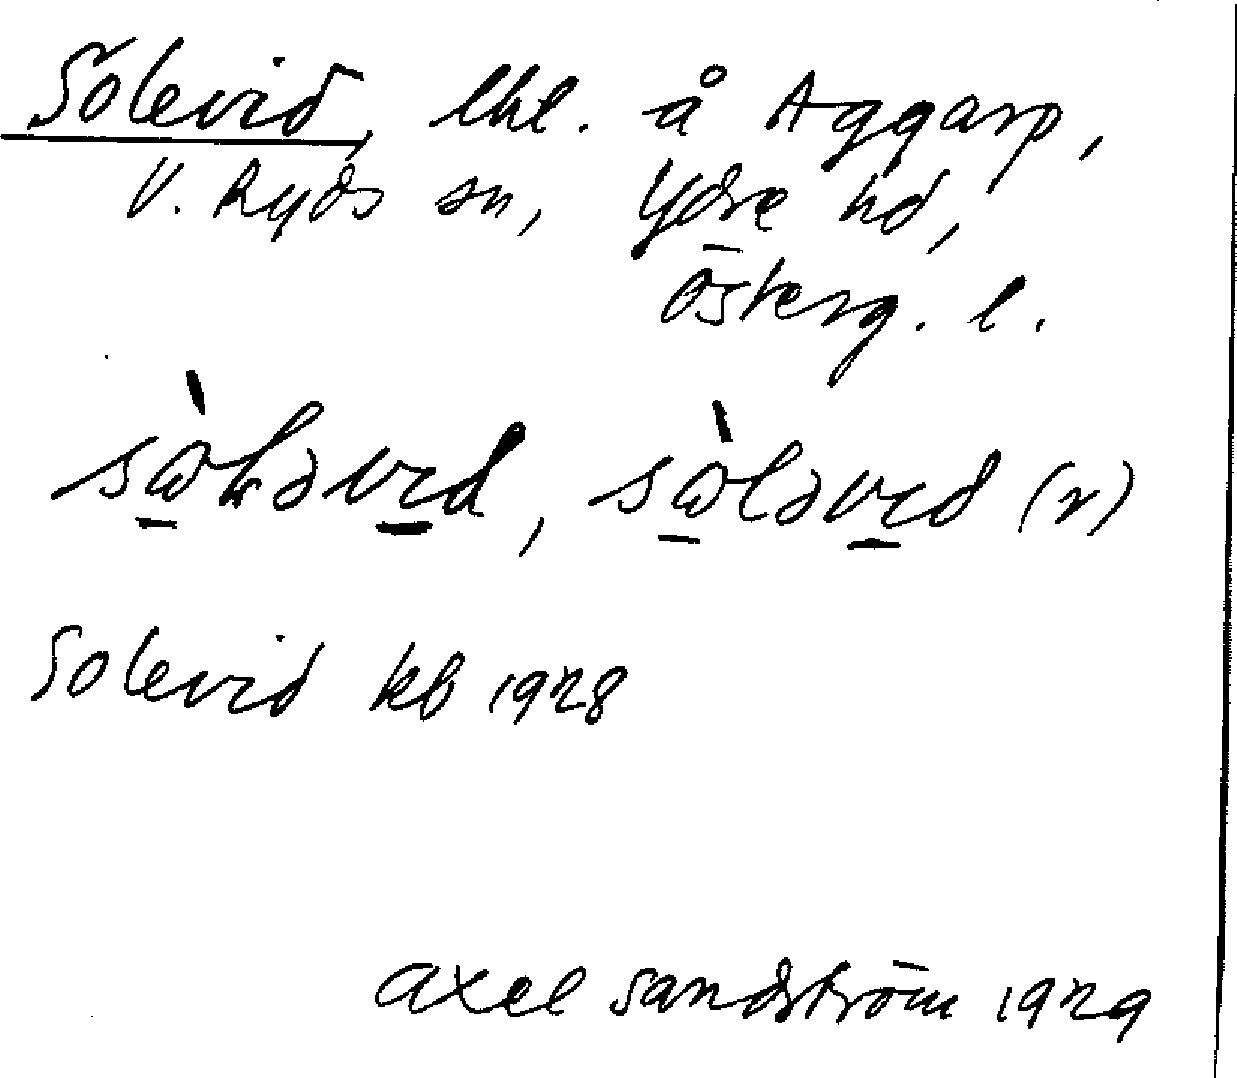 Solevid, lhl. å Aggarp,
V. Ryds sn, Ydre hd,
Österg. l.
sɷ̀ɭəvɪd, sɷ̀ləvɪd (r)
Solevid kb 1928
Axel Sandström 1929